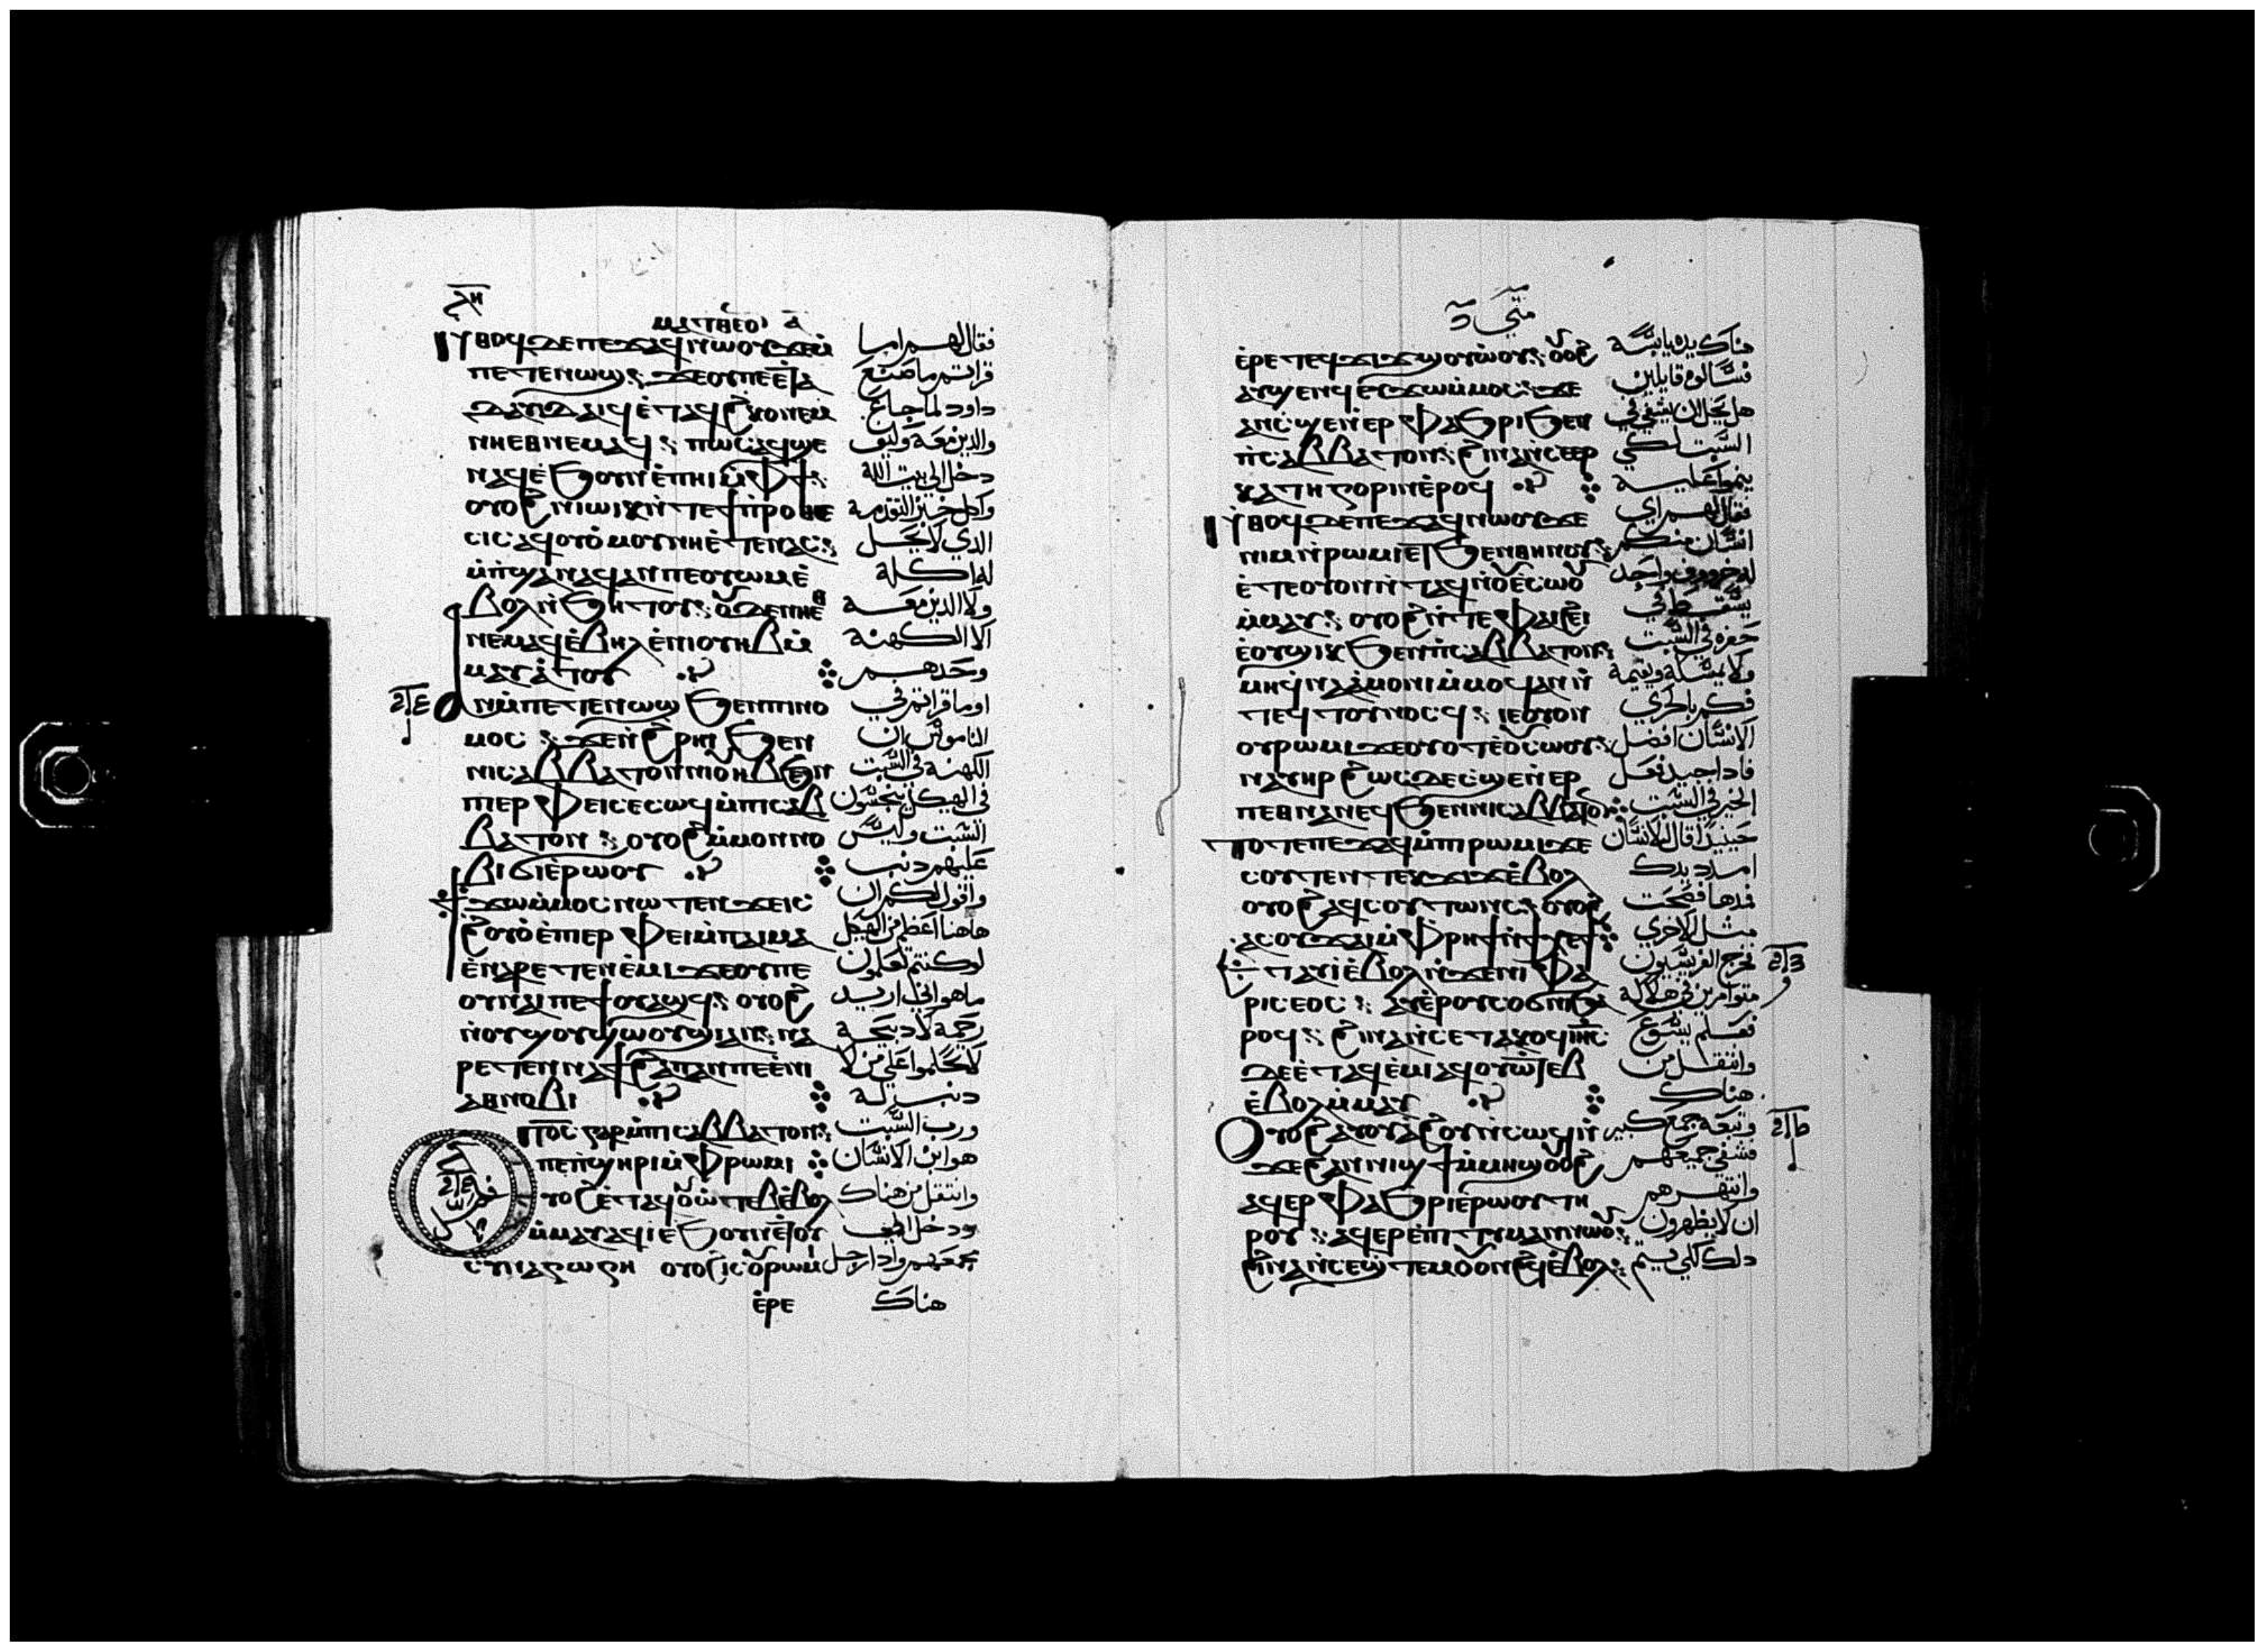 ⲗⲏ
ⲙⲁⲧⲑⲉⲟⲥ ⲁ
ⲛⲑⲟϥ ⲇⲉ ⲡⲉϫⲁϥ ⲛⲱⲟⲩ ϫⲉ ⲙ̇
ⲡⲉⲧⲉⲛⲱϣ: ϫⲉ ⲟⲩ ⲡⲉ ⲉⲧⲁ
ⲇⲁⲩⲓⲇ ⲁⲓϥ ⲉ̇ⲧⲁϥϩⲕⲟ ⲛⲉⲙ
ⲛⲏ ⲉⲑⲛⲉⲙⲁϥ: ⲡⲱⲥ ⲁϥϣⲉ
ⲛⲁϥ ⲉ̇ϧⲟⲩⲛ ⲉ̇ⲡⲏⲓ ⲙ̇ⲫϯ:
ⲟⲩⲟϩ ⲛⲓⲱⲓⲕ ⲛ̇ⲧⲉ ϯⲡⲣⲟⲑⲉ
ⲥⲓⲥ ⲁϥⲟⲩⲟ̇ⲙⲟⲩ ⲛⲏ ⲉ̇ⲧⲉ ⲛⲁⲥ
ⲙ̇ⲡϣⲁ ⲛⲁϥ ⲁⲛ ⲡⲉ ⲟⲩⲱⲙ ⲉ̇
ⲃⲟⲗ ⲛ̇ϧⲏⲧⲟⲩ: ⲟⲩⲇⲉ ⲛⲏ ⲉ̇ⲑ
ⲛⲉⲙⲁϥ ⲉ̇ⲃⲏⲗ ⲉ̇ⲛⲓⲟⲩⲏⲃ ⲙ̇
ⲙⲁⲩⲁ̇ⲧⲟⲩ
ⲛⲙ̇ⲡⲉⲧⲉⲛⲱϣ ϧⲉⲛ ⲡⲓⲛⲟ
ⲙⲟⲥ: ϫⲉ ⲛ̇ϩⲣⲏⲓ ϧⲉⲛ
ⲛⲓⲥⲁⲃⲃⲁⲧⲟⲛ ⲛⲓⲟⲩⲏⲃ ϧⲉⲛ
ⲡⲓⲉⲣⲫⲉⲓ ⲥⲉⲥⲱϥ ⲙ̇ⲡⲓⲥⲁⲃ
ⲃⲁⲧⲟⲛ: ⲟⲩⲟϩ ⲙ̇ⲙⲟⲛ ⲛⲟ
ⲃⲓ ϭⲓ ⲉ̇ⲣⲱⲟⲩ
ϯϫⲱ ⲙ̇ⲙⲟⲥ ⲛⲱⲧⲉⲛ ϫⲉ ⲓⲥ
ϩⲟⲩⲟ̇ ⲉ̇ⲡⲓⲉⲣⲫⲉⲓ ⲙ̇ⲡⲁⲓⲙⲁ
ⲉ̇ⲛⲁⲣⲉⲧⲉⲛⲉ̇ⲙⲓ ϫⲉ ⲟⲩ ⲡⲉ
ⲟⲩⲛⲁⲓ ⲡⲉϯⲟⲩⲁϣϥ: ⲟⲩⲟϩ
ⲛ̇ⲟⲩϣⲟⲩϣⲱⲟⲩϣⲓ ⲁⲛ: ⲛⲁ
ⲣⲉⲧⲉⲛⲛⲁϯϩⲁⲡ ⲁⲛ ⲡⲉ ⲉ̇ⲛⲓ
ⲁⲑⲛⲟⲃⲓ
ⲡϭⲟⲥ ⲅⲁⲣ ⲙ̇ⲡⲓⲥⲁⲃⲃⲁⲧⲟⲛ:
ⲡⲉ ⲡ̇ϣⲏⲣⲓ ⲙ̇ⲫⲣⲱⲙⲓ
ⲟⲩⲟϩ ⲉ̇ⲧⲁϥⲟⲩⲱ̇ⲧⲉⲃ ⲉ̇ⲃⲟⲗ
ⲙ̇ⲙⲁⲩ ⲁϥⲓ̇ ⲉ̇ϧⲟⲩⲛ ⲉ̇ⲧⲟⲩ
ⲥⲩⲛⲁⲅⲱⲅⲏ ⲟⲩⲟϩ ⲓⲥ ⲟⲩⲣⲱⲙⲓ
ⲉ̇ⲣⲉ
فقال لهم اما
قراتم ما صنع
داود لما جاع
والدين معه وكيف
دخل الي بيت الله
واكل خبز التقدمة
الدي لا يحل
له اكله
ولا الدين معه
الا الكهنة
وحدهم
اوما قراتم في
الناموس ان
الكهنة في السبت
في الهيكل ينجسون
السبت وليس
عليهم دنب
واقول لكم ان
هاهنا اعظم من الهيكل
لو كنتم تعلمون
ما هو اني اريد
رحمة لا دبيحة
لا تحكموا علي من لا
دنب له
ورب السبت
هو ابن الانسان
وانتقل من هناك
ودخل الي
مجمعهم وادا رجل
هناك
متي د
ⲉ̇ⲣⲉ ⲧⲉϥϫⲓϫ ϣⲟⲩⲱ̇ⲟⲩ: ⲟⲩⲟϩ
ⲁⲩϣⲉⲛϥ ⲉⲩϫⲱ ⲙ̇ⲙⲟⲥ: ϫⲉ
ⲁⲛ ⲥϣⲉ ⲛ̇ⲉⲣⲫⲁϧⲣⲓ ϧⲉⲛ
ⲡ̇ⲥⲁⲃⲃⲁⲧⲟⲛ: ϩⲓⲛⲁ ⲛ̇ⲥⲉⲉⲣ
ⲕⲁⲧⲏⲅⲟⲣⲓⲛ ⲉ̇ⲣⲟϥ
ⲛ̇ⲑⲟϥ ⲇⲉ ⲡⲉϫⲁϥ ⲛⲱⲟⲩ ϫⲉ
ⲛⲓⲙ ⲛ̇ⲣⲱⲙⲓ ⲉⲧϧⲉⲛ ⲑⲏⲛⲟⲩ:
ⲉ̇ⲧⲉ ⲟⲩⲟⲛⲛ̇ⲧⲁϥ ⲛ̇ⲟⲩⲉ̇ⲥⲱⲟⲩ
ⲙ̇ⲙⲁⲩ: ⲟⲩⲟϩ ⲛ̇ⲧⲉ ⲫⲁⲓ ϩⲉⲓ
ⲉ̇ⲟⲩϣⲓⲕ ϧⲉⲛ ⲡ̇ⲥⲁⲃⲃⲁⲧⲟⲛ:
ⲙⲏ ϥ̇ⲛⲁⲁ̇ⲙⲟⲛⲓ ⲙ̇ⲙⲟϥ ⲁⲛ ⲛ̇
ⲧⲉϥⲧⲟⲩⲛⲟⲥϥ: ⲓⲉ ⲟⲩⲟⲛ
ⲟⲩⲣⲱⲙⲓ ϫⲉ ⲟⲩⲟⲧ ⲉ̇ⲟⲩⲉⲥⲱⲟⲩ:
ⲛⲁⲩⲏⲣ ϩⲱⲥⲇⲉ ⲥϣⲉ ⲛ̇ⲉⲣ
ⲡⲉⲑⲛⲁⲛⲉϥ ϧⲉⲛ ⲛⲓⲥⲁⲃⲃⲁⲧⲟⲛ
ⲧⲟⲧⲉ ⲡⲉϫⲁϥ ⲙ̇ⲡⲓⲣⲱⲙⲓ ϫⲉ
ⲥⲟⲩⲧⲉⲛ ⲧⲉⲕϫⲓϫ ⲉ̇ⲃⲟⲗ
ⲟⲩⲟϩ ⲁϥⲥⲟⲩⲧⲱⲛⲥ: ⲟⲩⲟϩ
ⲁⲥⲟⲩϫⲁⲓ ⲙ̇ⲫⲣⲏϯ ⲛ̇ϯⲕⲉϯ
ⲉⲧⲁⲩⲓ̇ ⲉ̇ⲃⲟⲗ ⲛ̇ϫⲉ ⲛⲓⲫⲁ
ⲣⲓⲥⲉⲟⲥ: ⲁⲩⲉ̇ⲣⲟⲩⲥⲟϭⲛⲓ ϧⲁ
ⲣⲟϥ: ϩⲓⲛⲁ ⲛ̇ⲥⲉⲧⲁⲕⲟϥ ⲓⲏⲥ
ⲇⲉ ⲉ̇ⲧⲁϥⲉ̇ⲙⲓ ⲁϥⲟⲩⲱ̇ⲧⲉⲃ
ⲉ̇ⲃⲟⲗ ⲙ̇ⲙⲁⲩ
ⲟⲩⲟϩ ⲁⲩⲟⲩⲁϩⲟⲩ ⲛ̇ⲥⲱϥ ⲛ̇
ϫⲉ ϩⲁⲛⲛⲓϣϯ ⲙ̇ⲙⲏϣ ⲟⲩⲟϩ
ⲁϥⲉⲣⲫⲁϧⲣⲓ ⲉ̇ⲣⲱⲟⲩ ⲧⲏ
ⲣⲟⲩ: ⲁϥⲉⲣⲉ̇ⲡⲓⲧⲓⲙⲁⲛ ⲛⲱⲟⲩ:
ϩⲓⲛⲁ ⲛ̇ⲥⲉϣ̇ⲧⲉⲙⲟⲩⲟⲛϩϥ ⲉ̇ⲃⲟⲗ:
هناك يده يابسة
فسالوه قايلين
هل يحل ان يشفي في
السبت لكي
ينموا عليه
فقال لهم اي
انسان منكم
له خروف واحد
يسقط في
حفره في السبت
ولا يمسكه ويقيمه
فكم بالحري
الانسان افضل
فادا جيد فعل
الخير في السبت
حينيد قال للانسان
امدد يدك
فمدها فصحت
مثل الاخري
فخرج الفريسيون
متوامرين في هلاكه
فعلم يسوع
وانتقل من
هناك
وتبعه جمع كبير
فشفي جميعهم
وانتهرهم
ان لا يظهرون
دلك لكي يتم